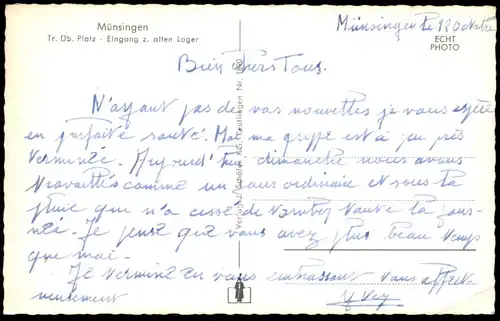 Münsingen
Tr. Üb. Platz - Eingang z. alten Lager
Münsingen le 12 Octobre
ECHT
PHOTO
Bien chers Tous.
N'ayant pas de vos nouvelles je vous espère
en parfaite santé. Moi ma grippe est à peu près
terminée. Aujourd'hui dimanche nous avons
travaillés comme un jour ordinaire et sous la
pluie qui n'a cessé de tomber toute la jour-
née. Je pense que vous avez plus beau temps
que moi-
Je termine en vous embrassant tous affect-
ueusement
Yvey
Verlag Gebr. Metz, Reutlingen Nr.